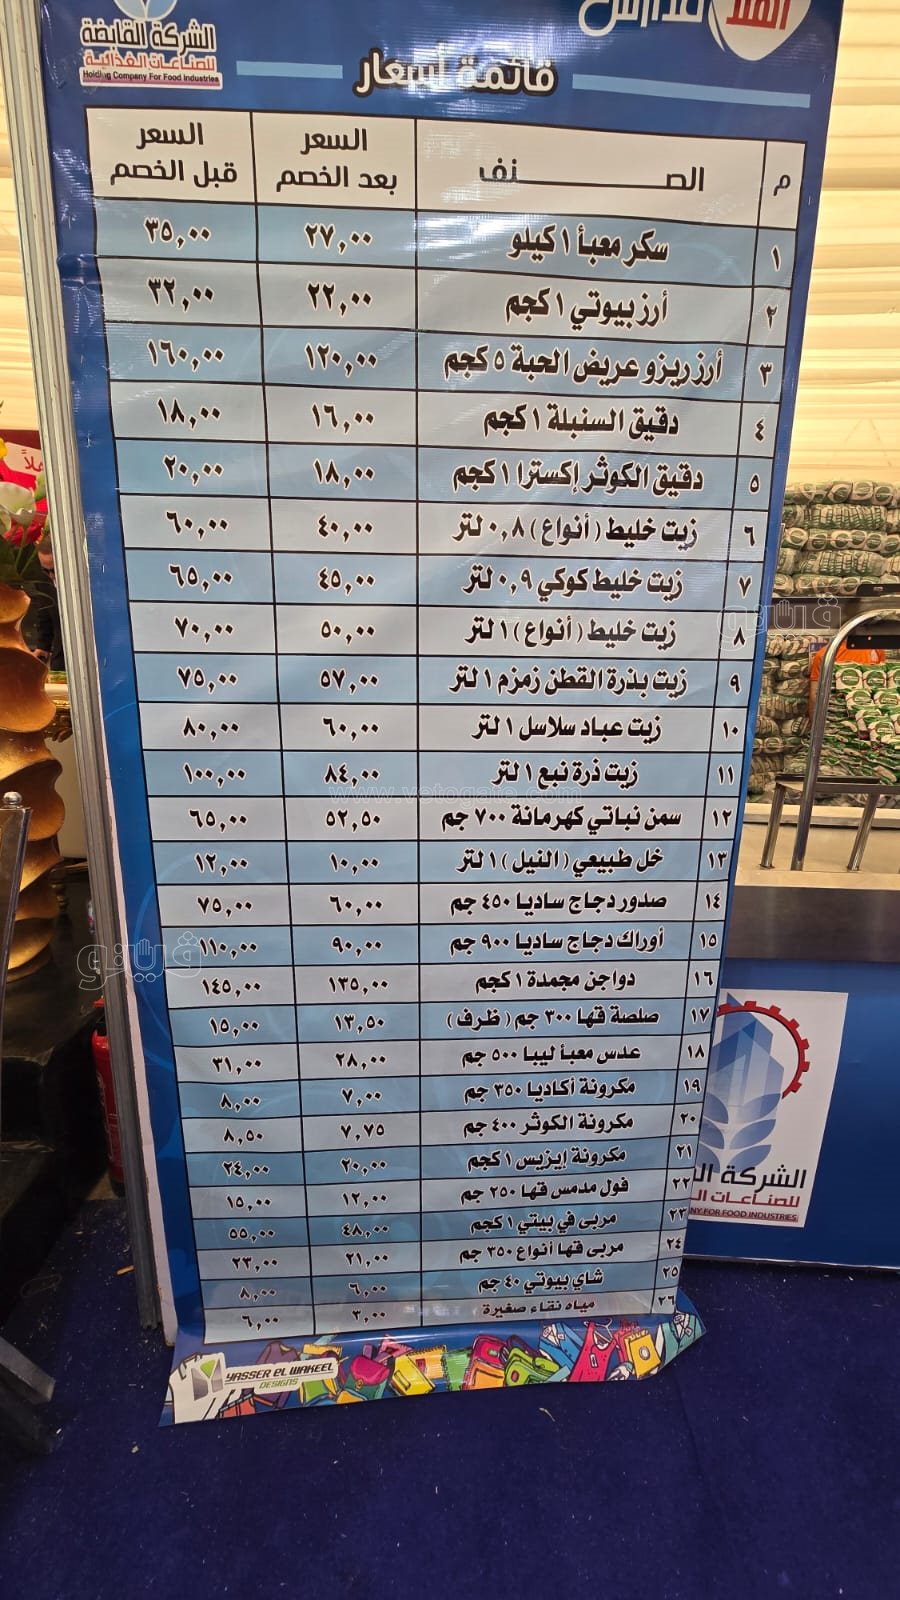 مدارس
الشركة القابضة
للصناعات الغذائية
Holding Company For Food Industries
قائمة أسعار
م الصـــــنف السعر بعد الخصم السعر قبل الخصم
١ سكر معبأ ١ كيلو ٢٧,٠٠ ٣٥,٠٠
٢ أرز بيوتي ١ كجم ٢٢,٠٠ ٣٢,٠٠
٣ أرز ريزو عريض الحبة ٥ كجم ١٢٠,٠٠ ١٦٠,٠٠
٤ دقيق السنبلة ١ كجم ١٦,٠٠ ١٨,٠٠
٥ دقيق الكوثر إكسترا ١ كجم ١٨,٠٠ ٢٠,٠٠
٦ زيت خليط (أنواع) ٠,٨ لتر ٤٠,٠٠ ٦٠,٠٠
٧ زيت خليط كوكي ٠,٩ لتر ٤٥,٠٠ ٦٥,٠٠
٨ زيت خليط (أنواع) ١ لتر ٥٠,٠٠ ٧٠,٠٠
٩ زيت بذرة القطن زمزم ١ لتر ٥٧,٠٠ ٧٥,٠٠
١٠ زيت عباد سلاسل ١ لتر ٦٠,٠٠ ٨٠,٠٠
١١ زيت ذرة نبع ١ لتر ٨٤,٠٠ ١٠٠,٠٠
١٢ سمن نباتي كهرمانة ٧٠٠ جم ٥٢,٥٠ ٦٥,٠٠
١٣ خل طبيعي (النيل) ١ لتر ١٠,٠٠ ١٢,٠٠
١٤ صدور دجاج ساديا ٤٥٠ جم ٦٠,٠٠ ٧٥,٠٠
١٥ أوراك دجاج ساديا ٩٠٠ جم ٩٠,٠٠ ١١٠,٠٠
١٦ دواجن مجمدة ١ كجم ١٣٥,٠٠ ١٤٥,٠٠
١٧ صلصة قها ٣٠٠ جم (ظرف) ١٣,٥٠ ١٥,٠٠
١٨ عدس معبأ ليبا ٥٠٠ جم ٢٨,٠٠ ٣١,٠٠
١٩ مكرونة أكاديا ٣٥٠ جم ٧,٠٠ ٨,٠٠
٢٠ مكرونة الكوثر ٤٠٠ جم ٧,٧٥ ٨,٥٠
٢١ مكرونة إيزيس ١ كجم ٢٠,٠٠ ٢٤,٠٠
٢٢ فول مدمس قها ٢٥٠ جم ١٢,٠٠ ١٥,٠٠
٢٣ مربى في بيتي ١ كجم ٤٨,٠٠ ٥٥,٠٠
٢٤ مربى قها أنواع ٣٥٠ جم ٢١,٠٠ ٢٣,٠٠
٢٥ شاي بيوتي ٤٠ جم ٦,٠٠ ٨,٠٠
٢٦ مياه نقاء صغيرة ٣,٠٠ ٦,٠٠
YASSER EL WAKEEL
DESIGNS
الشركة
للصناعات
NY FOR FOOD INDUSTRIES
ڤيتو
ڤيتو
www.vetogate.com